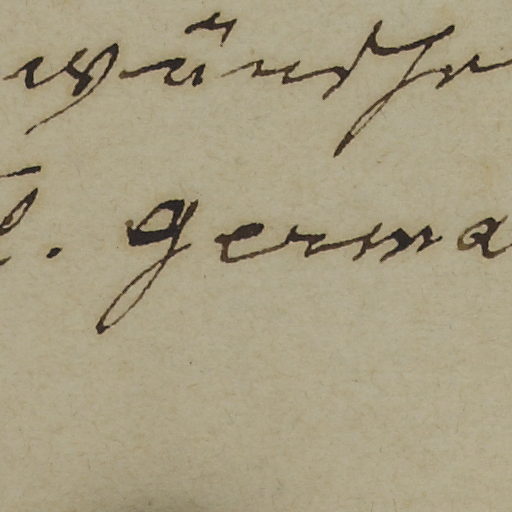 wünsche
l. germa